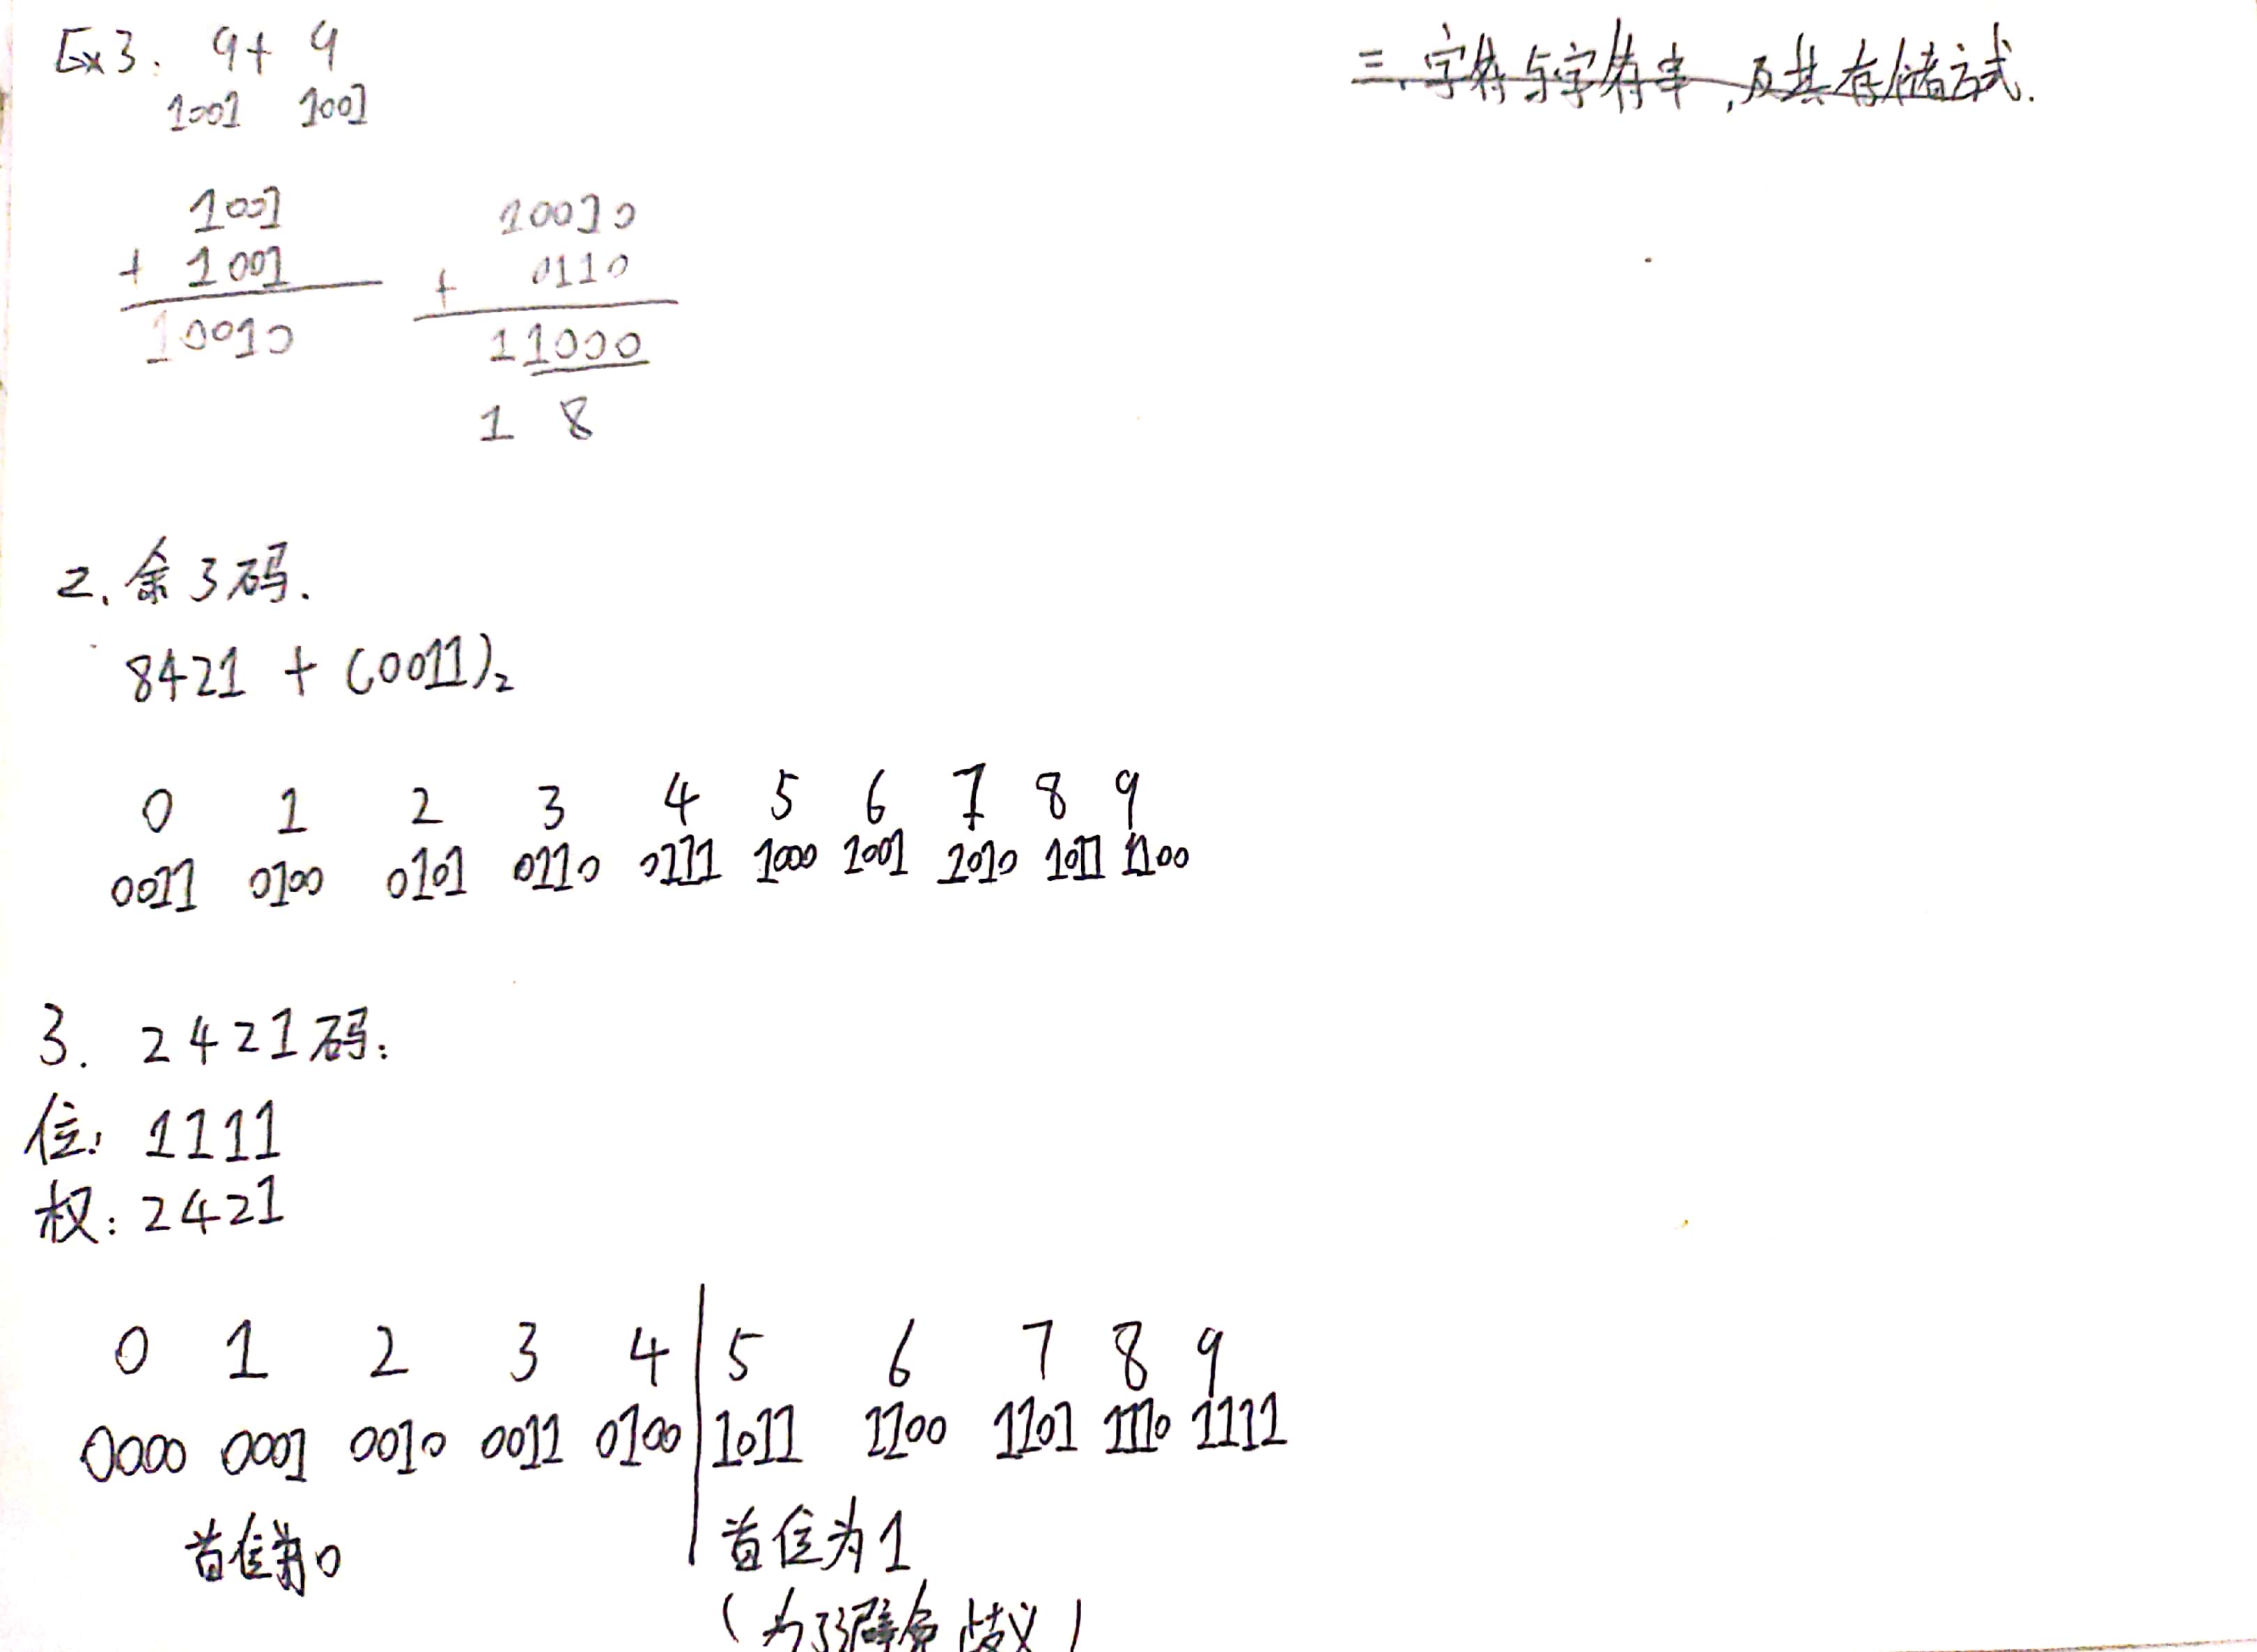 Ex3: 9+ 9
1001 1001
1001
+ 1001
10010
10010
+ 0110
11000
1 8
2. 余3码.
8421 + (0011)₂
0 1 2 3 4 5 6 7 8 9
0011 0100 0101 0110 0111 1000 1001 1010 1011 1100
3. 2421码:
位: 1111
权: 2421
0 1 2 3 4 5 6 7 8 9
0000 0001 0010 0011 0100 1011 1100 1101 1110 1111
首位为0 首位为1
(为了避免歧义)
三.字符与字符串,及其存储方式.